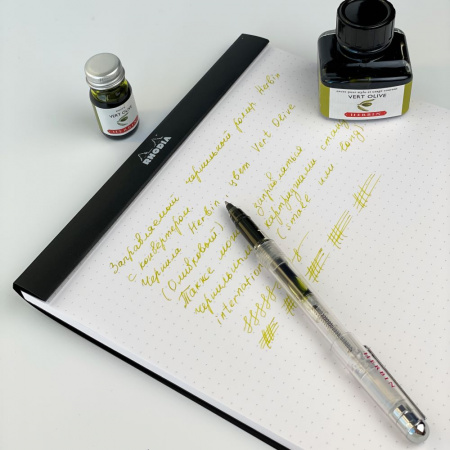 VERT OLIVE
HERBIN
VERT OLIVE
HERBIN
RHODIA
Заправляемый чернильный роллер Herbin
с конвертером.
Чернила Herbin, цвет Vert Olive
(Оливковый)
Также заправляться
чернильными картриджами
international (small или long)
HERBIN